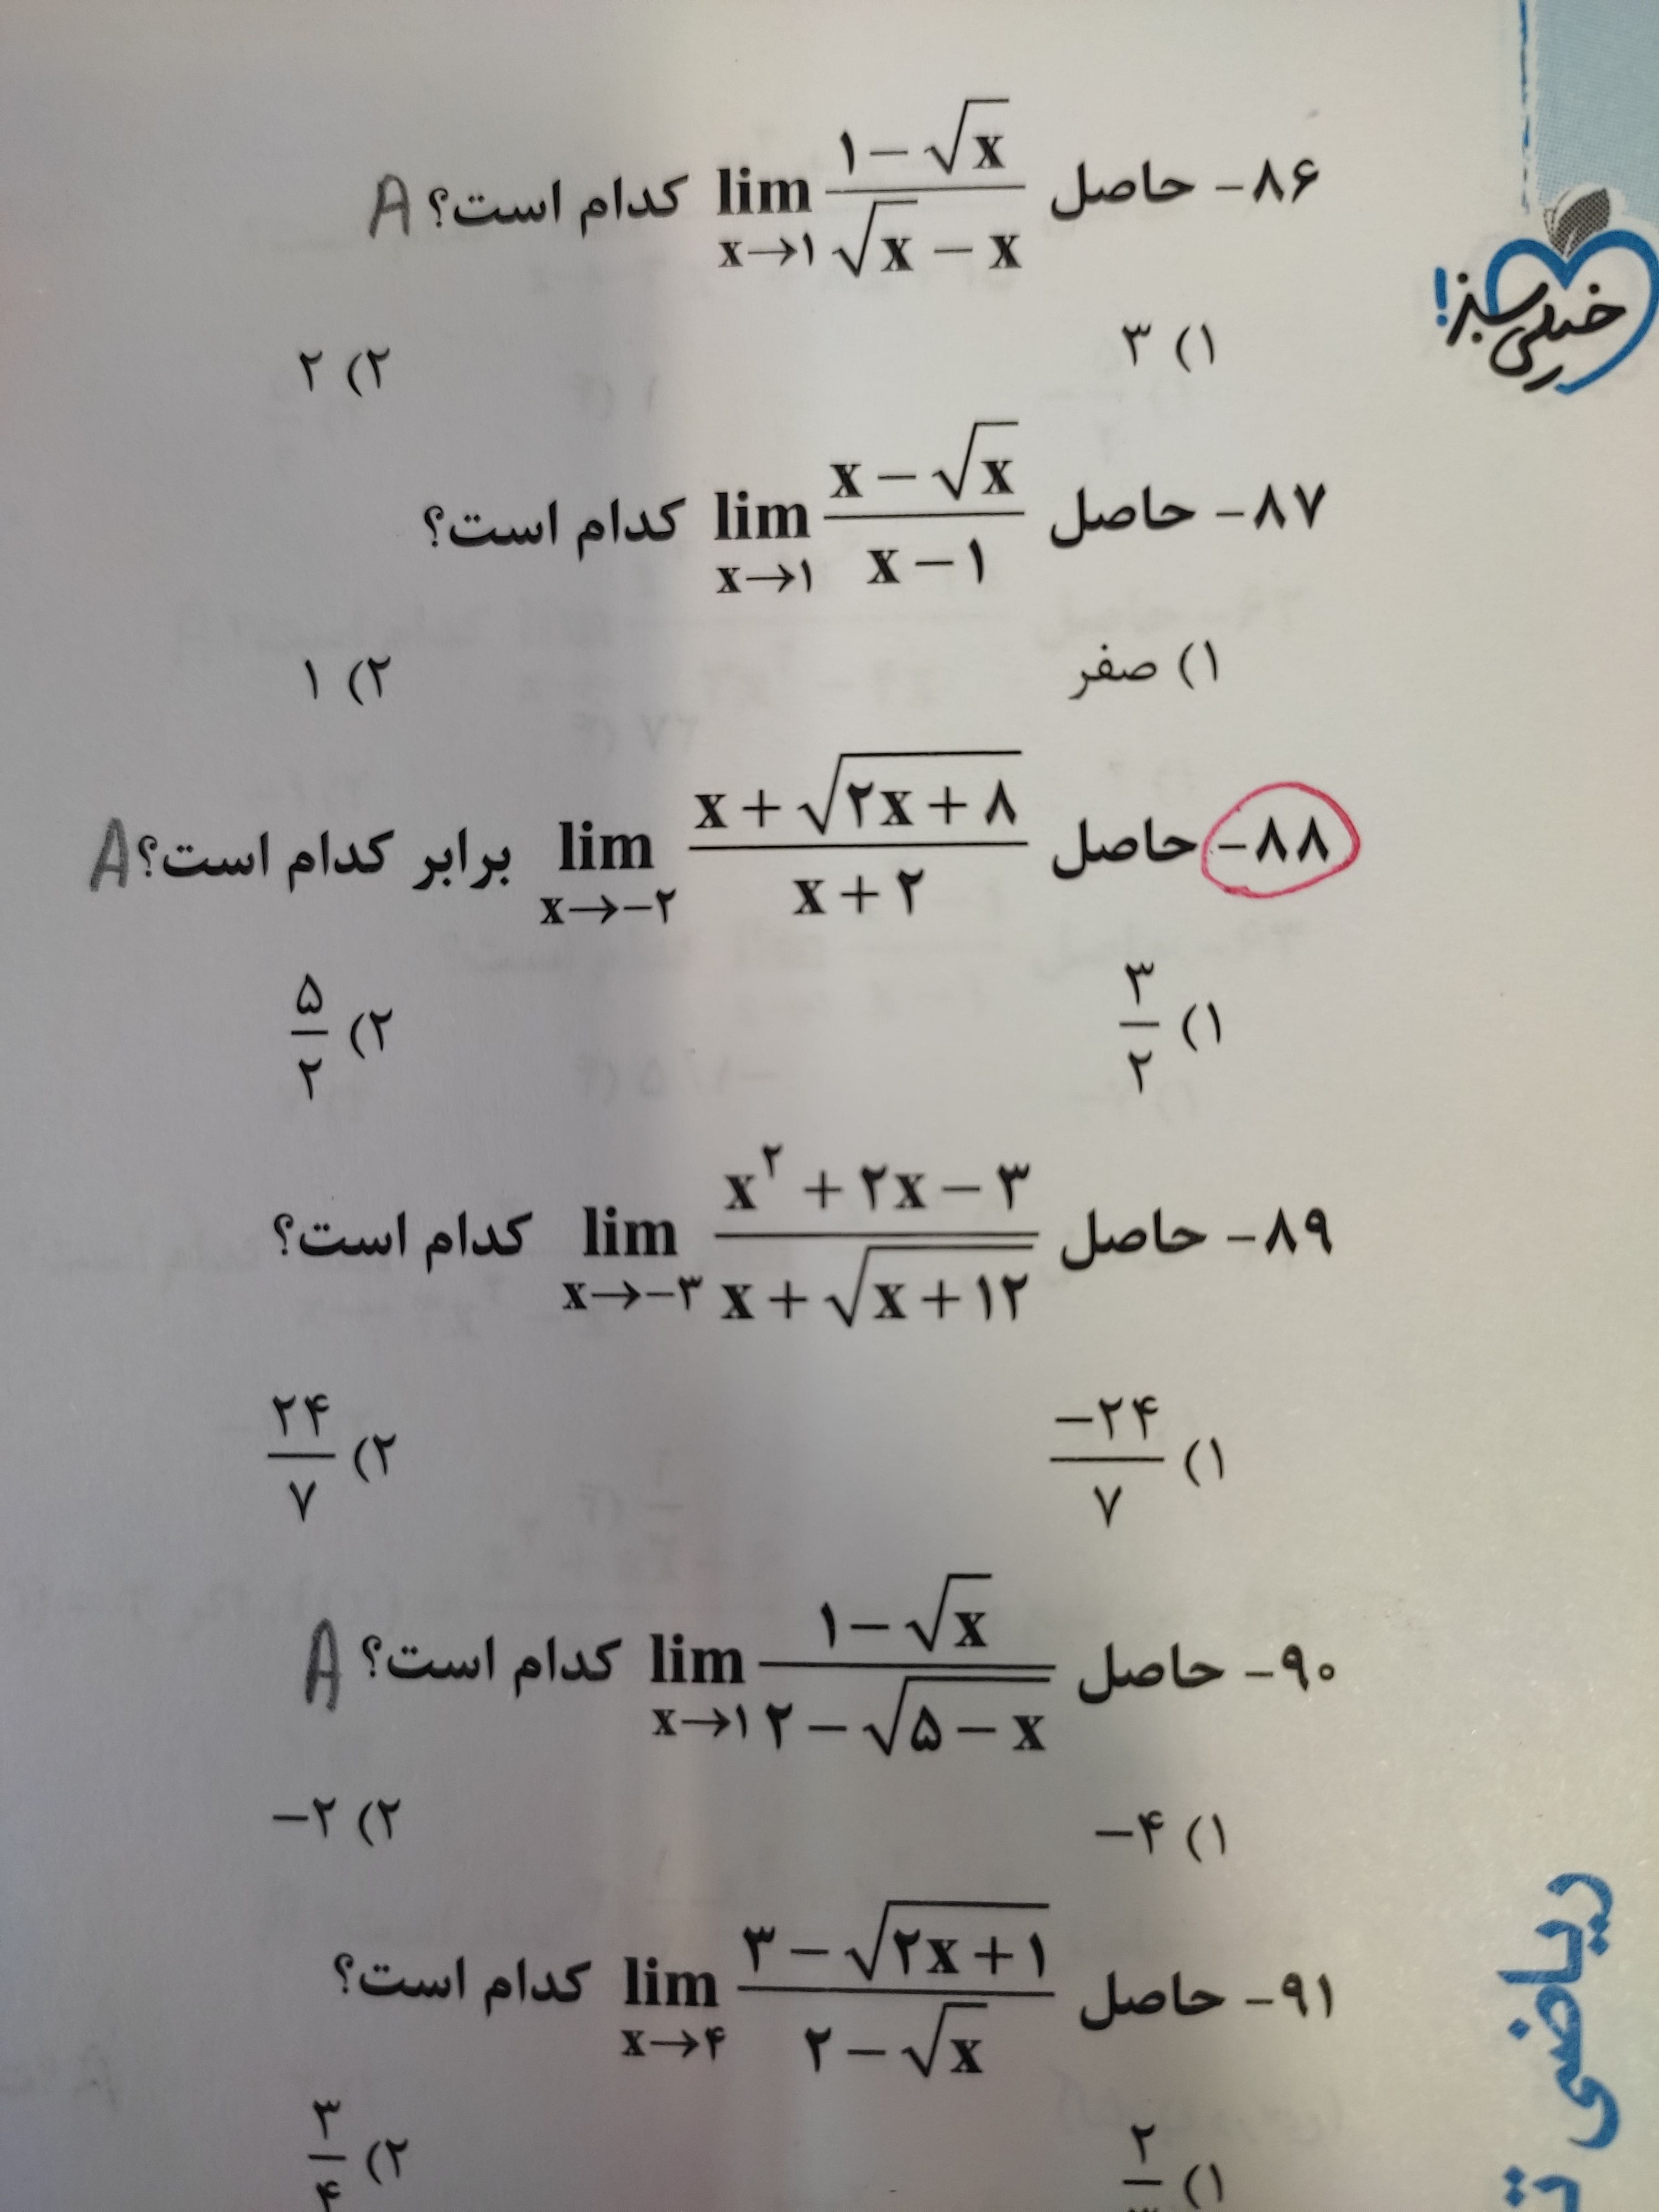 ۸۶- حاصل lim x→۱ (۱-√x)/(√x - x) کدام است؟ A
۱) ۳
۲) ۲
۸۷- حاصل lim x→۱ (x-√x)/(x-۱) کدام است؟
۱) صفر
۲) ۱
۸۸- حاصل lim x→-۲ (x+√(۲x+۸))/(x+۲) برابر کدام است؟ A
۱) ۳/۲
۲) ۵/۲
۸۹- حاصل lim x→-۳ (x^۲+۲x-۳)/(x+√(x+۱۲)) کدام است؟
۱) -۲۴/۷
۲) ۲۴/۷
۹۰- حاصل lim x→۱ (۱-√x)/(۲-√(۵-x)) کدام است؟ A
۱) -۴
۲) -۲
۹۱- حاصل lim x→۴ (۳-√(۲x+۱))/(۲-√x) کدام است؟
۱) ۲
۲) ۳/۴
خیلی سبز!
ریاضی